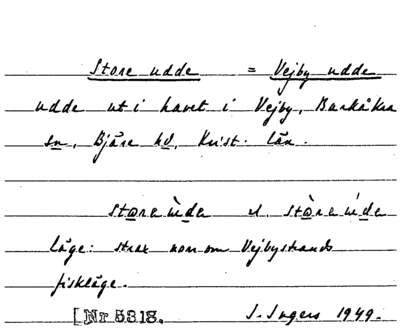 Store udde = Vejby udde
udde ut i havet i Vejby, Barkåkra
sn, Bjäre hd, Krist. län.
stǫre ùde el. stǫ̀re ú̀de
läge: strax norr om Vejbystrands
fiskläge.
[Nr 5818. I. Ingers 1949.